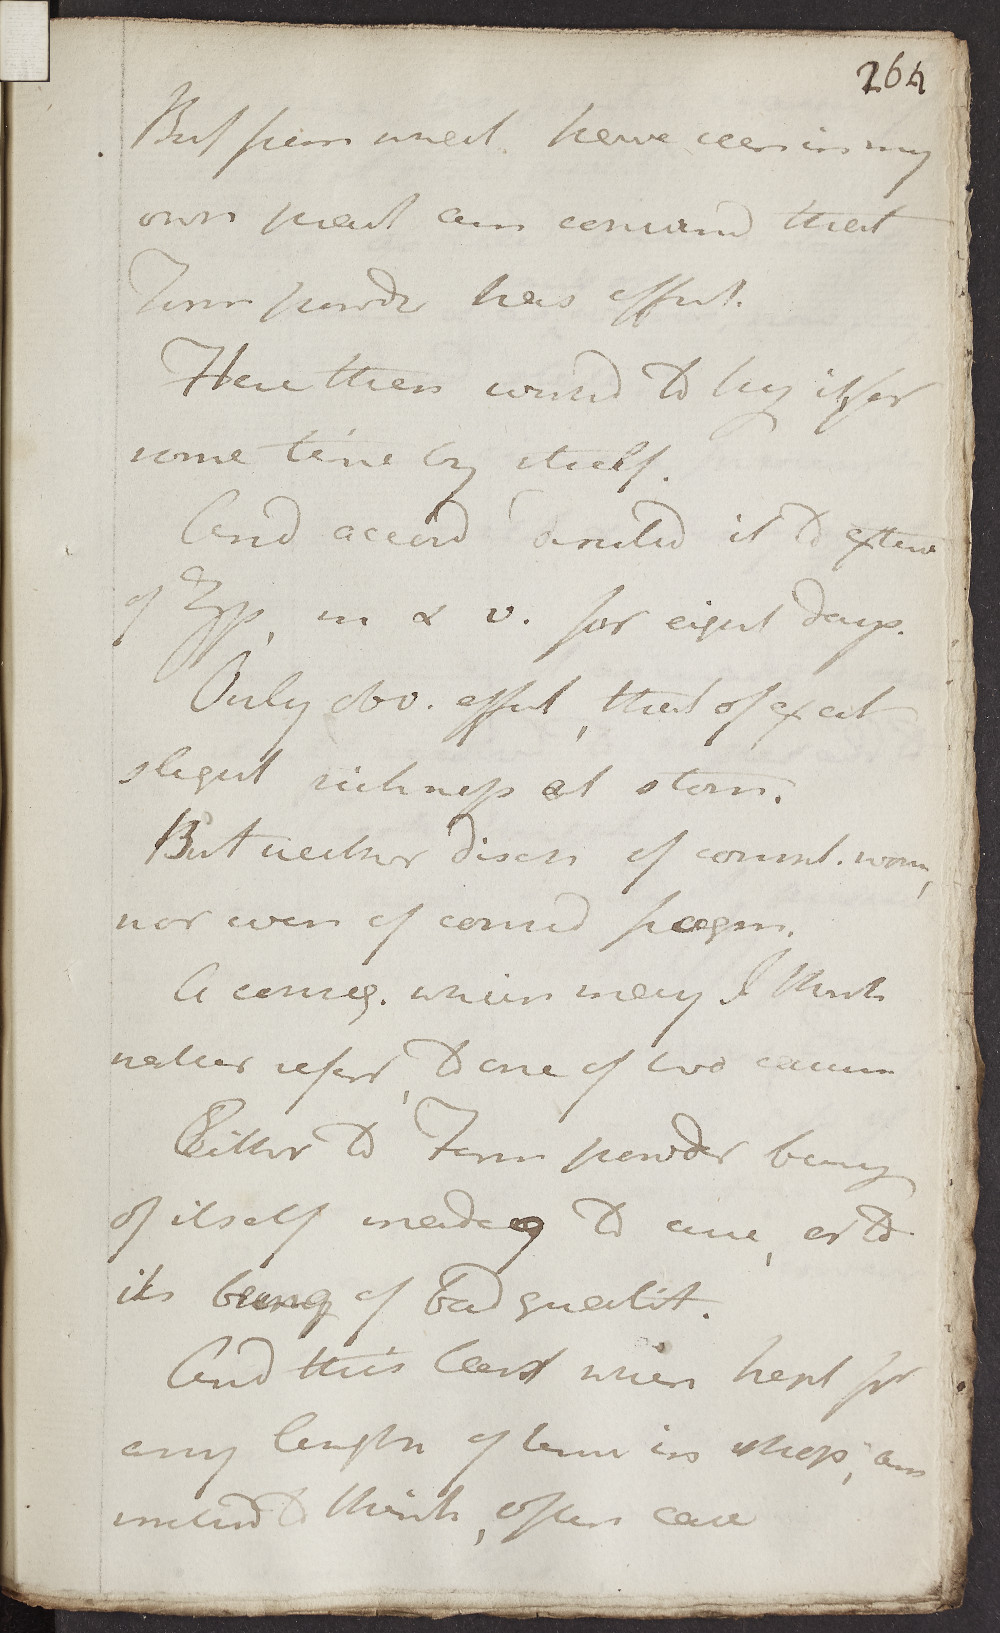 264
But from what have seen in my
own pract am convind that
Tinn powdr has effect.
Here then wishd to try it for
some time by itself.
And accord directed it to extent
of ʒſs, m & v. for eight days.
Only obv. effect, that of excit
slight sickness at stom.
But neither disch of comml. worm,
nor even of cound fragm.
A conseq. which may I think
neither refer, to one of two causes
Either to Tinn powdr being
of itself inadeq to cure, or to
its being of bad qualit.
And this last when kept for
any length of time in shop, am
inclind to think, often case